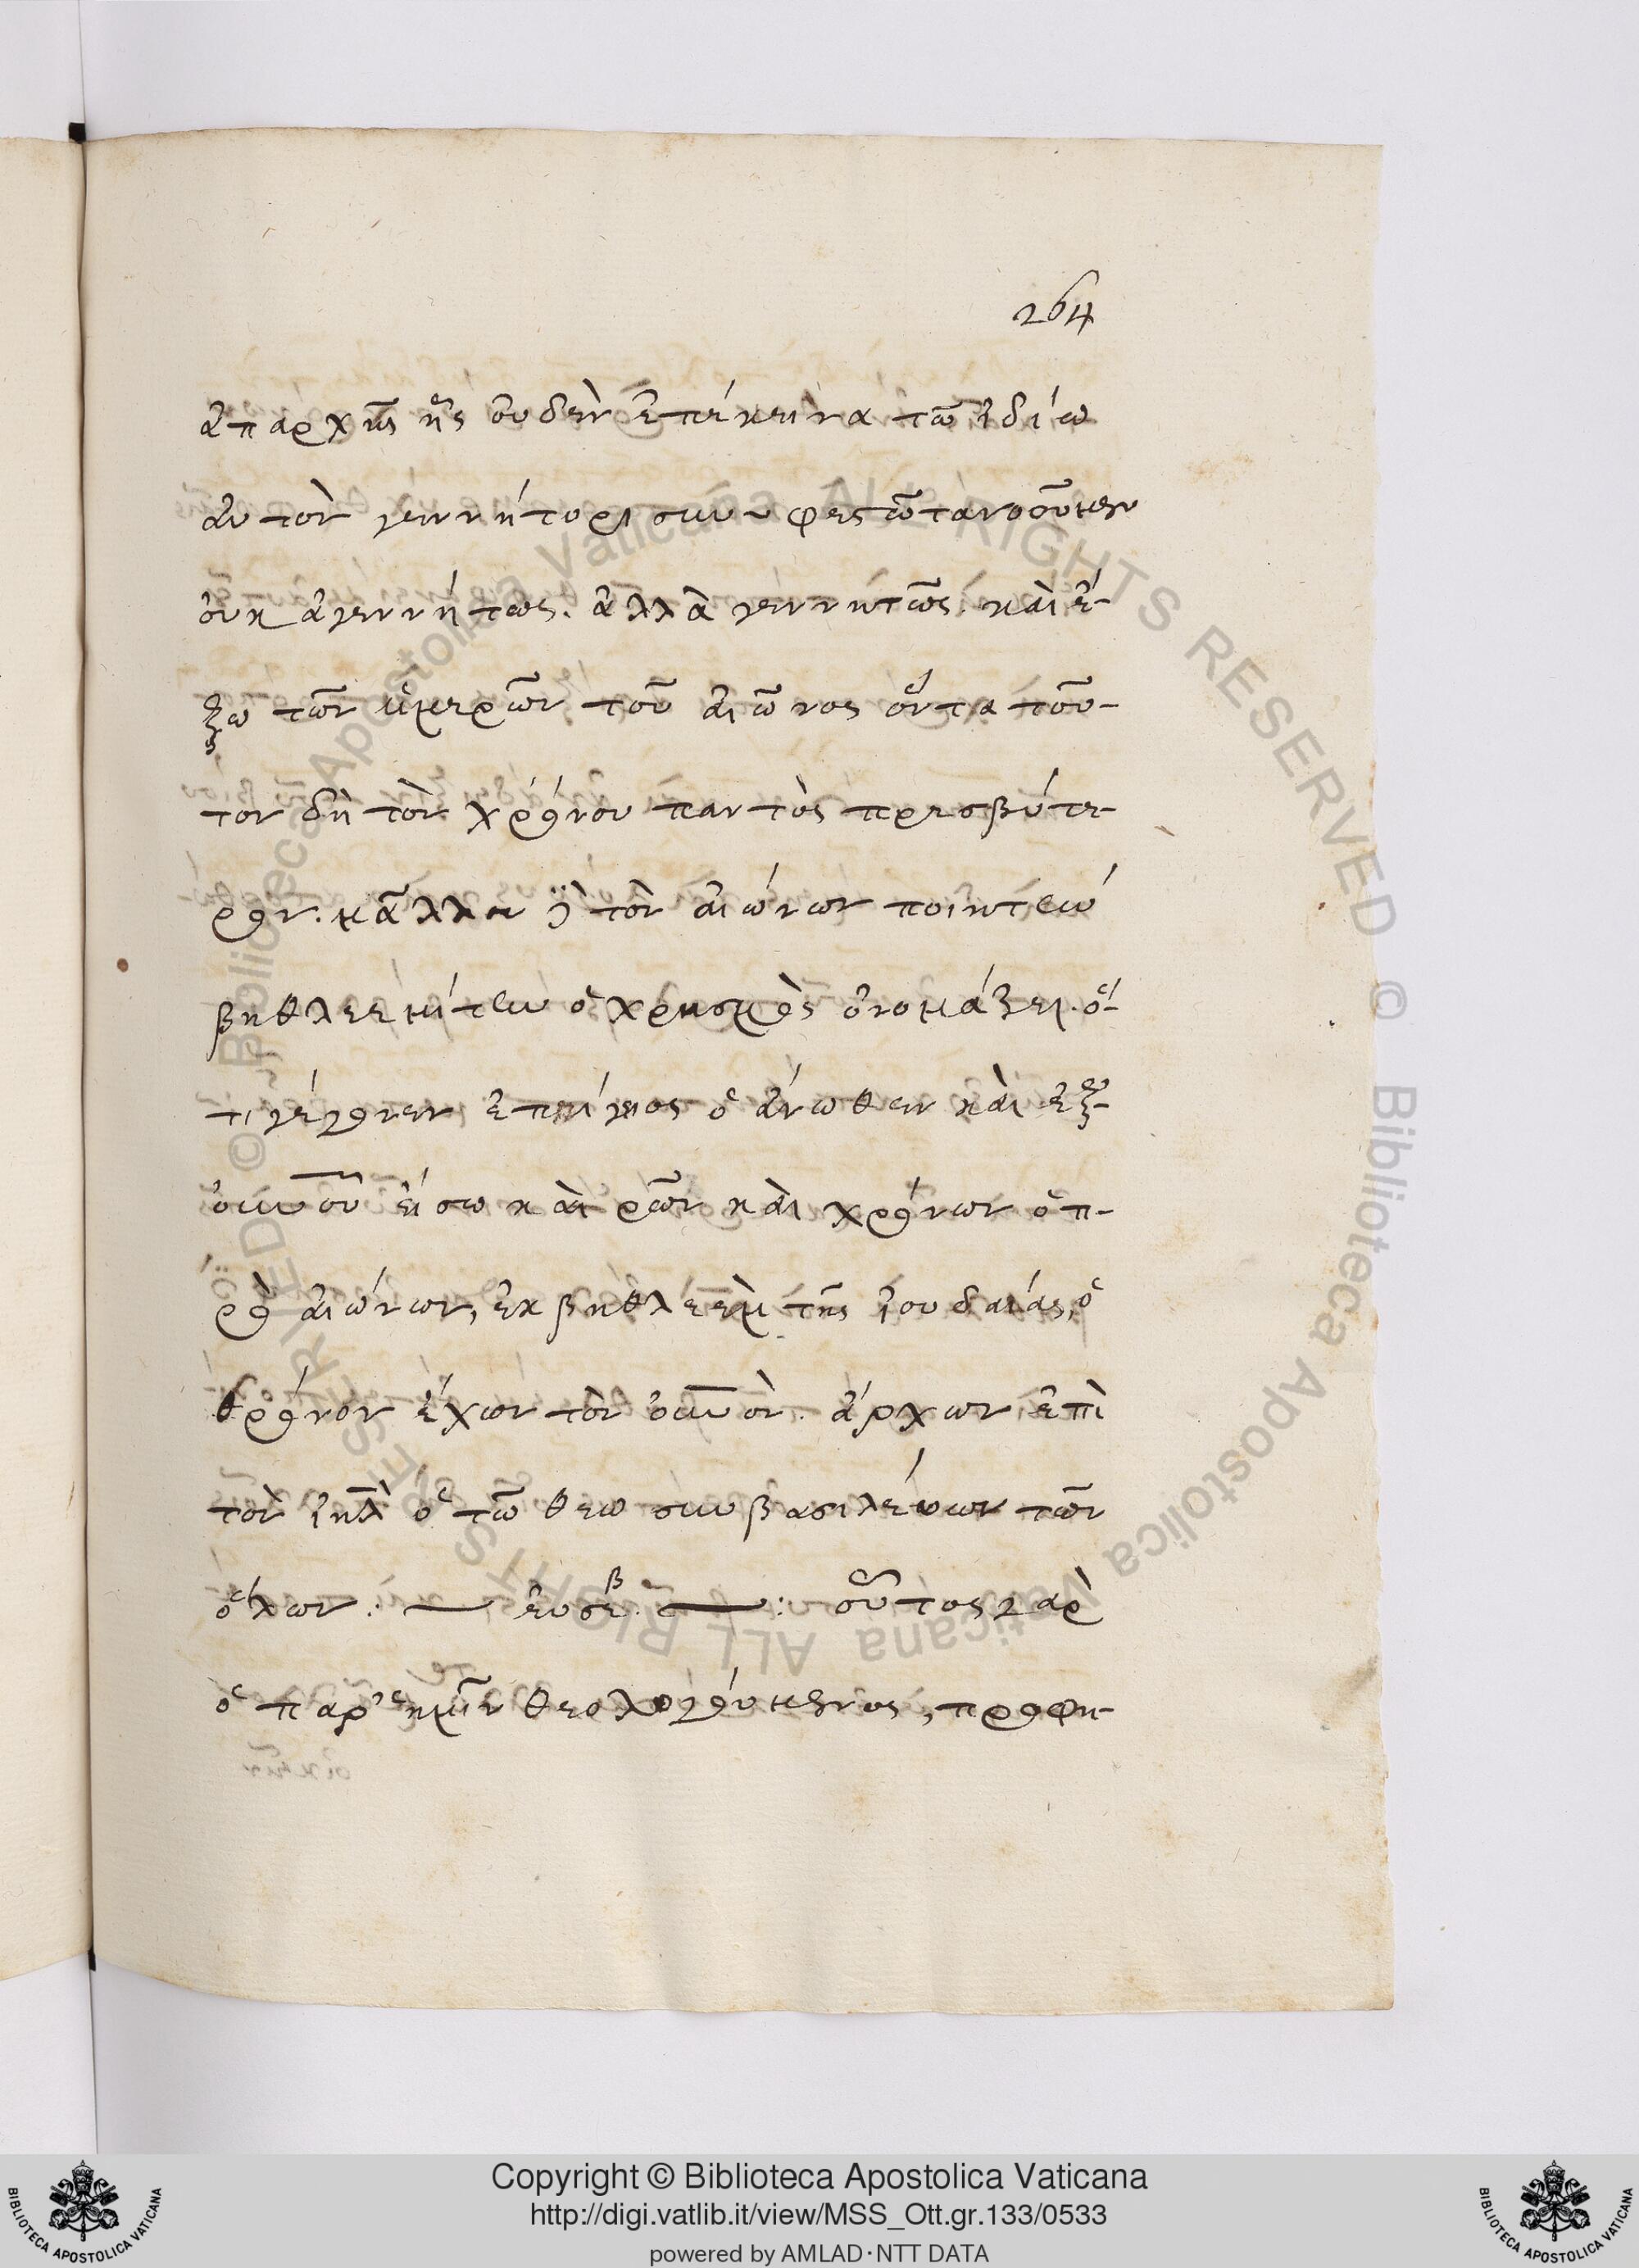 264
ἀπαρχῆς ἧς οὐδὲν ἐπέκεινα τῶ ἰδίω
αὐτὸν γεννήτορι συνυφεστῶτα νοοῦμεν
οὐκ ἀγεννήτως. ἀλλὰ γεννητῶς. καὶ ἔ-
ξω τῶν ἡμερῶν τοῦ αἰῶνος ὄντα τοῦ-
τον δὴ τὸν χρόνου παντὸς πρεσβύτε-
ρον. μᾶλλον δὲ τὸν αἰώνων ποιητὴν
βηθλεεμίτην ὁ χρησμὸς ὀνομάζει. ὅ-
τι γέγονεν ἐπίγειος ὁ ἄνωθεν καὶ ἐξ
οὐνοῦ εἴσω καιρῶν καὶ χρόνων ὁ π-
ρὸ αἰώνων, ἐκ βηθλεὲμ τῆς ἰουδαίας, ὁ
θρόνον ἔχων τὸν οὐνὸν. ἄρχων ἐπὶ
τὸν ἰηλ̀ ὁ τῶ θεω συμβασιλεύων τῶν
ὅλων : — εὐσεβ — : οὗτος γαρ
ὁ παρ' ἡμῖν θεολογούμενος, προφη-
Copyright © Biblioteca Apostolica Vaticana
http://digi.vatlib.it/view/MSS_Ott.gr.133/0533
powered by AMLAD·NTT DATA
BIBLIOTECA APOSTOLICA VATICANA
BIBLIOTECA APOSTOLICA VATICANA
© Biblioteca Apostolica Vaticana ALL RIGHTS RESERVED © Biblioteca Apostolica Vaticana ALL RIGHTS RESERVED